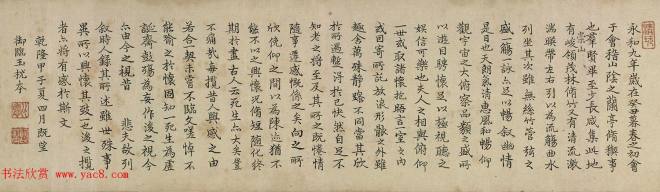 永和九年歲在癸丑暮春之初會
于會稽山陰之蘭亭脩稧事
也羣賢畢至少長咸集此地
有崇山峻領茂林脩竹又有清流激
湍暎帶左右引以為流觴曲水
列坐其次雖無絲竹管弦之
盛一觴一詠亦足以暢敘幽情
是日也天朗氣清惠風和暢仰
觀宇宙之大俯察品類之盛所
以遊目騁懷足以極視聽之
娛信可樂也夫人之相與俯仰
一世或取諸懷抱悟言一室之內
或因寄所託放浪形骸之外雖
趣舍萬殊靜躁不同當其欣
於所遇蹔得於己快然自足不
知老之將至及其所之既惓情
隨事遷感慨係之矣向之所
欣俛仰之間以為陳迹猶不
能不以之興懷況脩短隨化終
期於盡古人云死生亦大矣豈
不痛哉每攬昔人興感之由
若合一契未嘗不臨文嗟悼不
能喻之於懷固知一死生為虛
誕齊彭殤為妄作後之視今
亦由今之視昔 悲夫故列
敘時人錄其所述雖世殊事
異所以興懷其致一也後之攬
者亦將有感於斯文
乾隆甲子夏四月既望
御臨玉枕本
书法欣赏
www.yac8.com